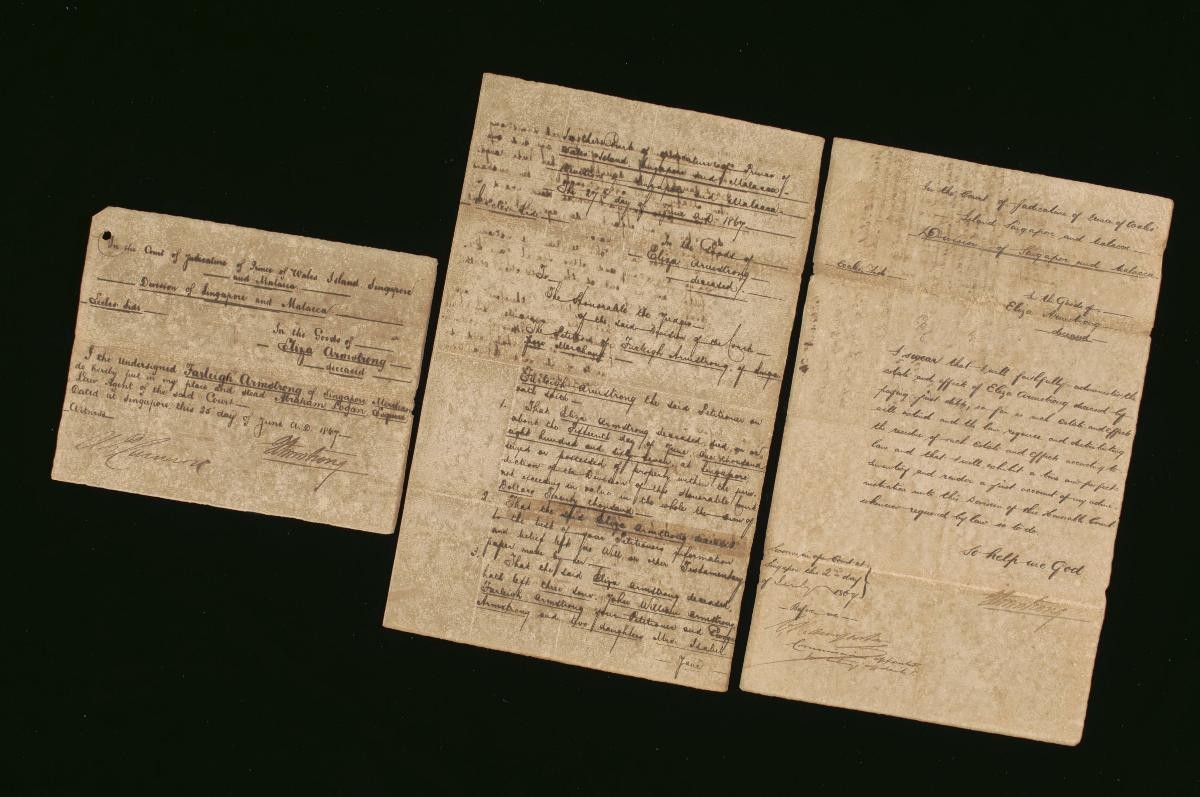 In the Court of Judicature of Prince of Wales Island Singapore
and Malacca
Division of Singapore and Malacca
In the Goods of
Eliza Armstrong
deceased
I the undersigned Farleigh Armstrong of Singapore Merchant
do hereby put in my place and stead Abraham Logan Esquire
Law Agent of the said Court
Dated at Singapore this 25 day of June A.D. 1867
Witness
of Judicature of Prince of
Wales Island Singapore and Malacca
Singapore and Malacca
The 27th day of June A.D. 1867
In the Goods of
Eliza Armstrong
deceased
To
The Honorable the Judges
of the said Division of the Court
The Petition of Farleigh Armstrong of Singa-
pore Merchant
Farleigh Armstrong the said Petitioner
saith
1. That Eliza Armstrong deceased, died, on or
about the Fifteenth day of June One thousand
eight hundred and sixty seven at Singapore
possessed of property within the juris-
diction of the Division of the Honorable Court
not exceeding in value in the whole the sum of
Dollars Twenty thousand
2. That the said Eliza Armstrong deceased
to the best of your Petitioner's information
and belief left no Will or other Testamentary
paper
3. That the said Eliza Armstrong deceased,
hath left three sons John William Armstrong
Farleigh Armstrong your Petitioner and
Armstrong and two daughters Mrs. Isabel
Jane
In the Court of Judicature of Prince of Wales
Island Singapore and Malacca
Division of Singapore and Malacca
In the Goods of
Eliza Armstrong
deceased
I swear that I will faithfully administer the
estate and effects of Eliza Armstrong deceased by
paying just debts, so far as said estate and effects
will extend and the law requires and distributing
the residue of said estate and effects according to
law and that I will exhibit a true and perfect
Inventory and render a just account of my admi-
nistration unto this Division of the Honorable Court
whenever required by law so to do.
So help me God
Sworn in open Court at
Singapore the 2nd day
of July 1867
Before me